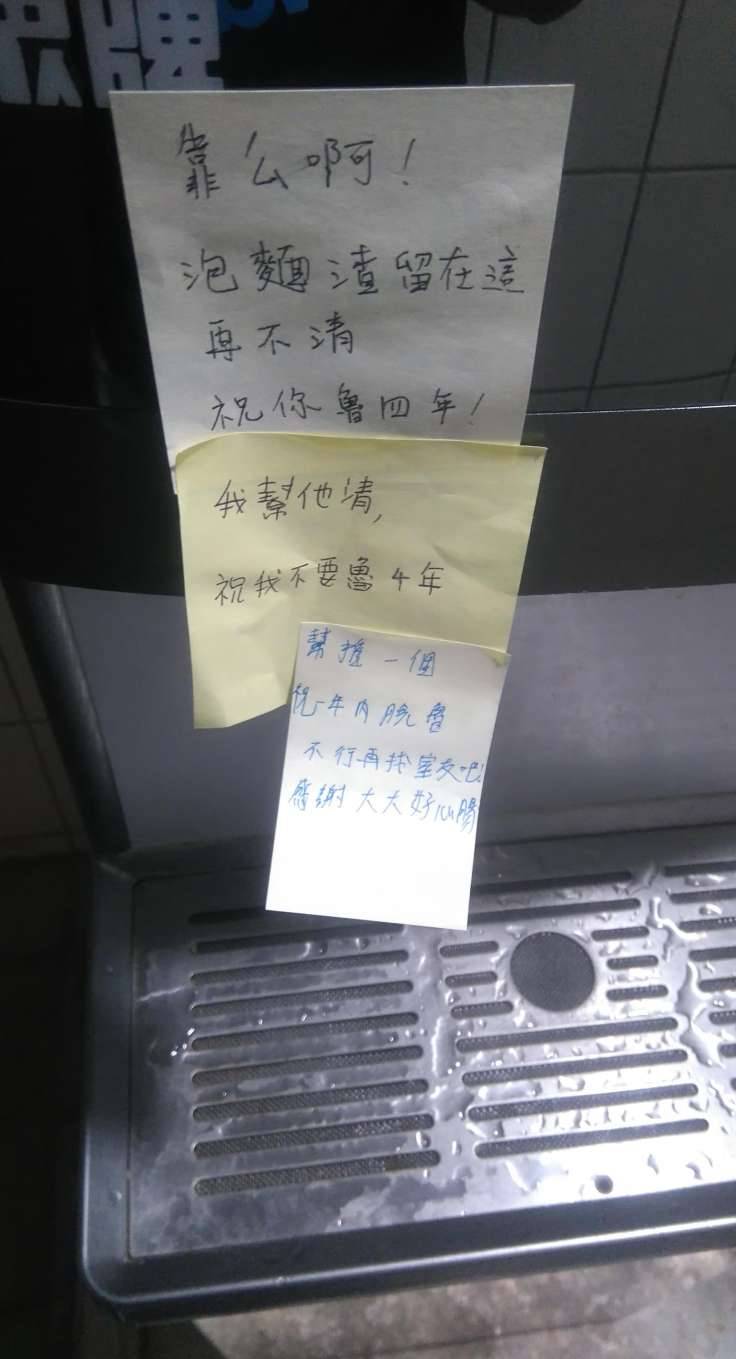 牌
靠么啊!
泡麵渣留在這
再不清
祝你魯四年!
我幫他清,
祝我不要魯4年
幫推一個
祝一年內脫魯
不行再找室友吧!
感謝大大好心腸